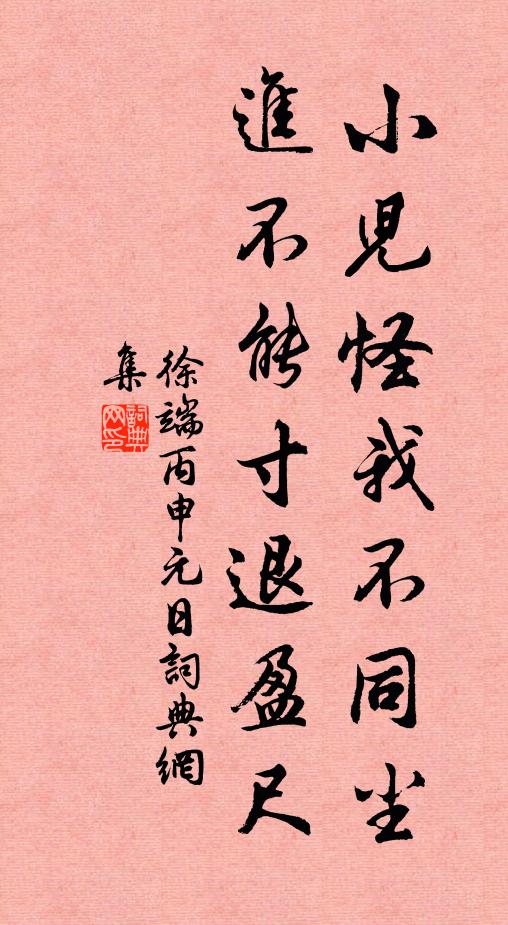 小児怪我不同坐
進不能寸退盈尺
徐端丙申元日詞典網
集
詞典
网印